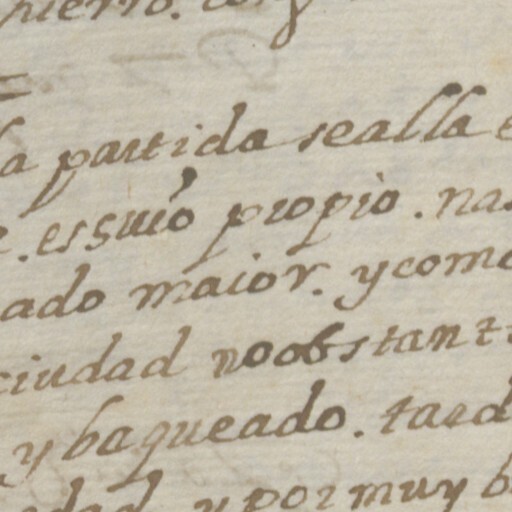 hierro.
la partida sealla e
. essuio propio. na
ado maior. ycomo
ciudad noobstante
y baqueado. tard
dad. ypormuy b